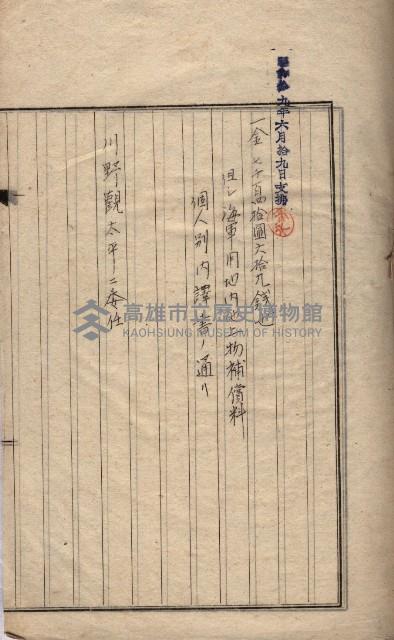 昭和拾九年六月拾九日支拂
一金七千百四拾圓六拾九錢也
但シ海軍用地内地上物補償料
個人別内譯書ノ通リ
川野觀太平ニ委任
高雄市立歷史博物館
KAOHSIUNG MUSEUM OF HISTORY